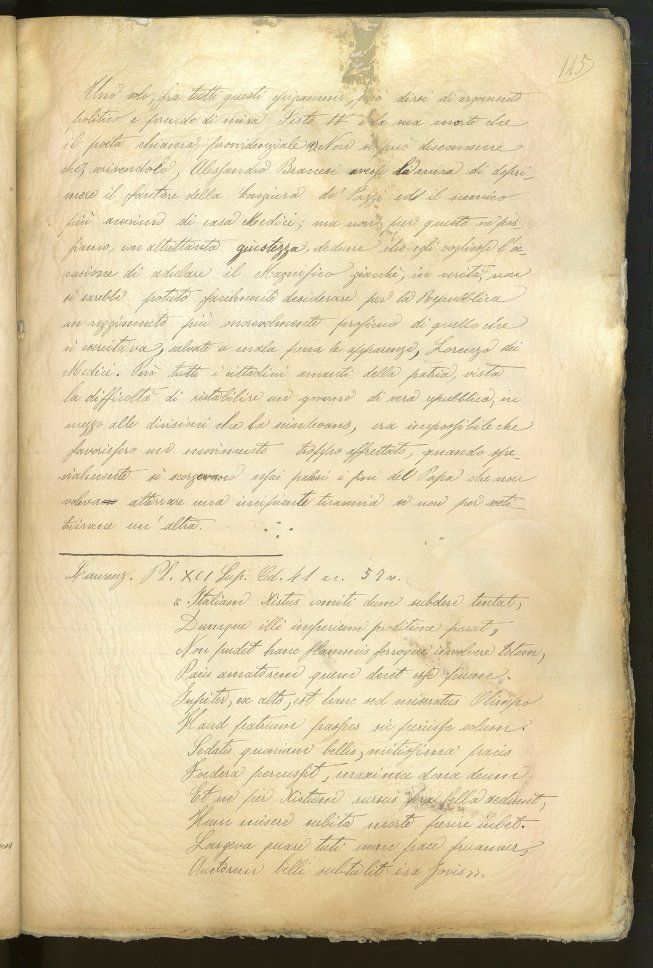 145
Uno solo, fra tutti questi epigrammi, può dirsi di argomento
politico e prende di mira Sisto IV e la sua morte che
il poeta chiama provvidenziale (1) Non si può disconoscere
che, scrivendolo, Alessandro Braccesi avesse la mira di depri-
mere il fautore della Congiura de' Pazzi ed il nemico
più acerrimo di casa Medici; ma non per questo ne pos-
siamo, con altrettanta giustezza, dedurre che egli cogliesse l'oc-
casione di adulare il Magnifico giacchè, in verità, non
si sarebbe potuto facilmente desiderare per la Repubblica
un reggimento più onorevolmente proficuo di quello che
vi esercitava, salvate a mala pena le apparenze, Lorenzo dei
Medici. Però tutti i cittadini amanti della patria, vista
la difficoltà di ristabilire un governo di vera repubblica, in
mezzo alle divisioni che la scindevano, era impossibile che
favorissero un movimento troppo affrettato, quando spe-
cialmente si scorgevano assai palesi i fini del Papa che non
voleva atterrare una incipiente tirannia se non per sosti-
tuirane un' altra.
Laurenz. Pl. XCI Sup. Cd. 41 ac. 57 v.
"Italiam Xistus comite dum subdere tentat,
Dumque illi imperium proditione parat,
Non pudet hanc flammis ferroque involvere totam,
Pacis amatorem quem decet esse pium.
Jupiter, ex alto, est hanc sed miseratus Olimpo
Haud patrium passus sic periisse solum.
Sedatis quoniam bellis, mitissima pacis
Foedera percussit, maxima dona deum
Et ne per Xistum rursus fera bella redirent,
Hunc misere subita morte perire iubet.
Longeva quare tuti nunc pace fruamur,
Auctorem belli subtulit ira Jovis".